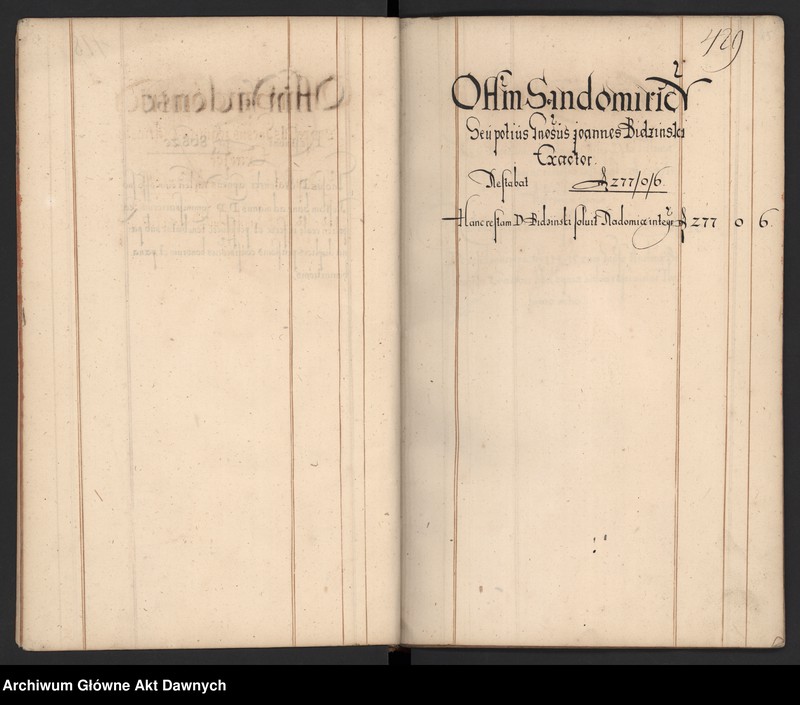 429
Offm Sandomirien
Seu potius Gnosus Joannes Bidzinski
Exactor.
Restabat fl 277/0/6.
Hanc restam D. Bidzinski soluit Radomiæ integr fl 277 0 6.
Archiwum Główne Akt Dawnych